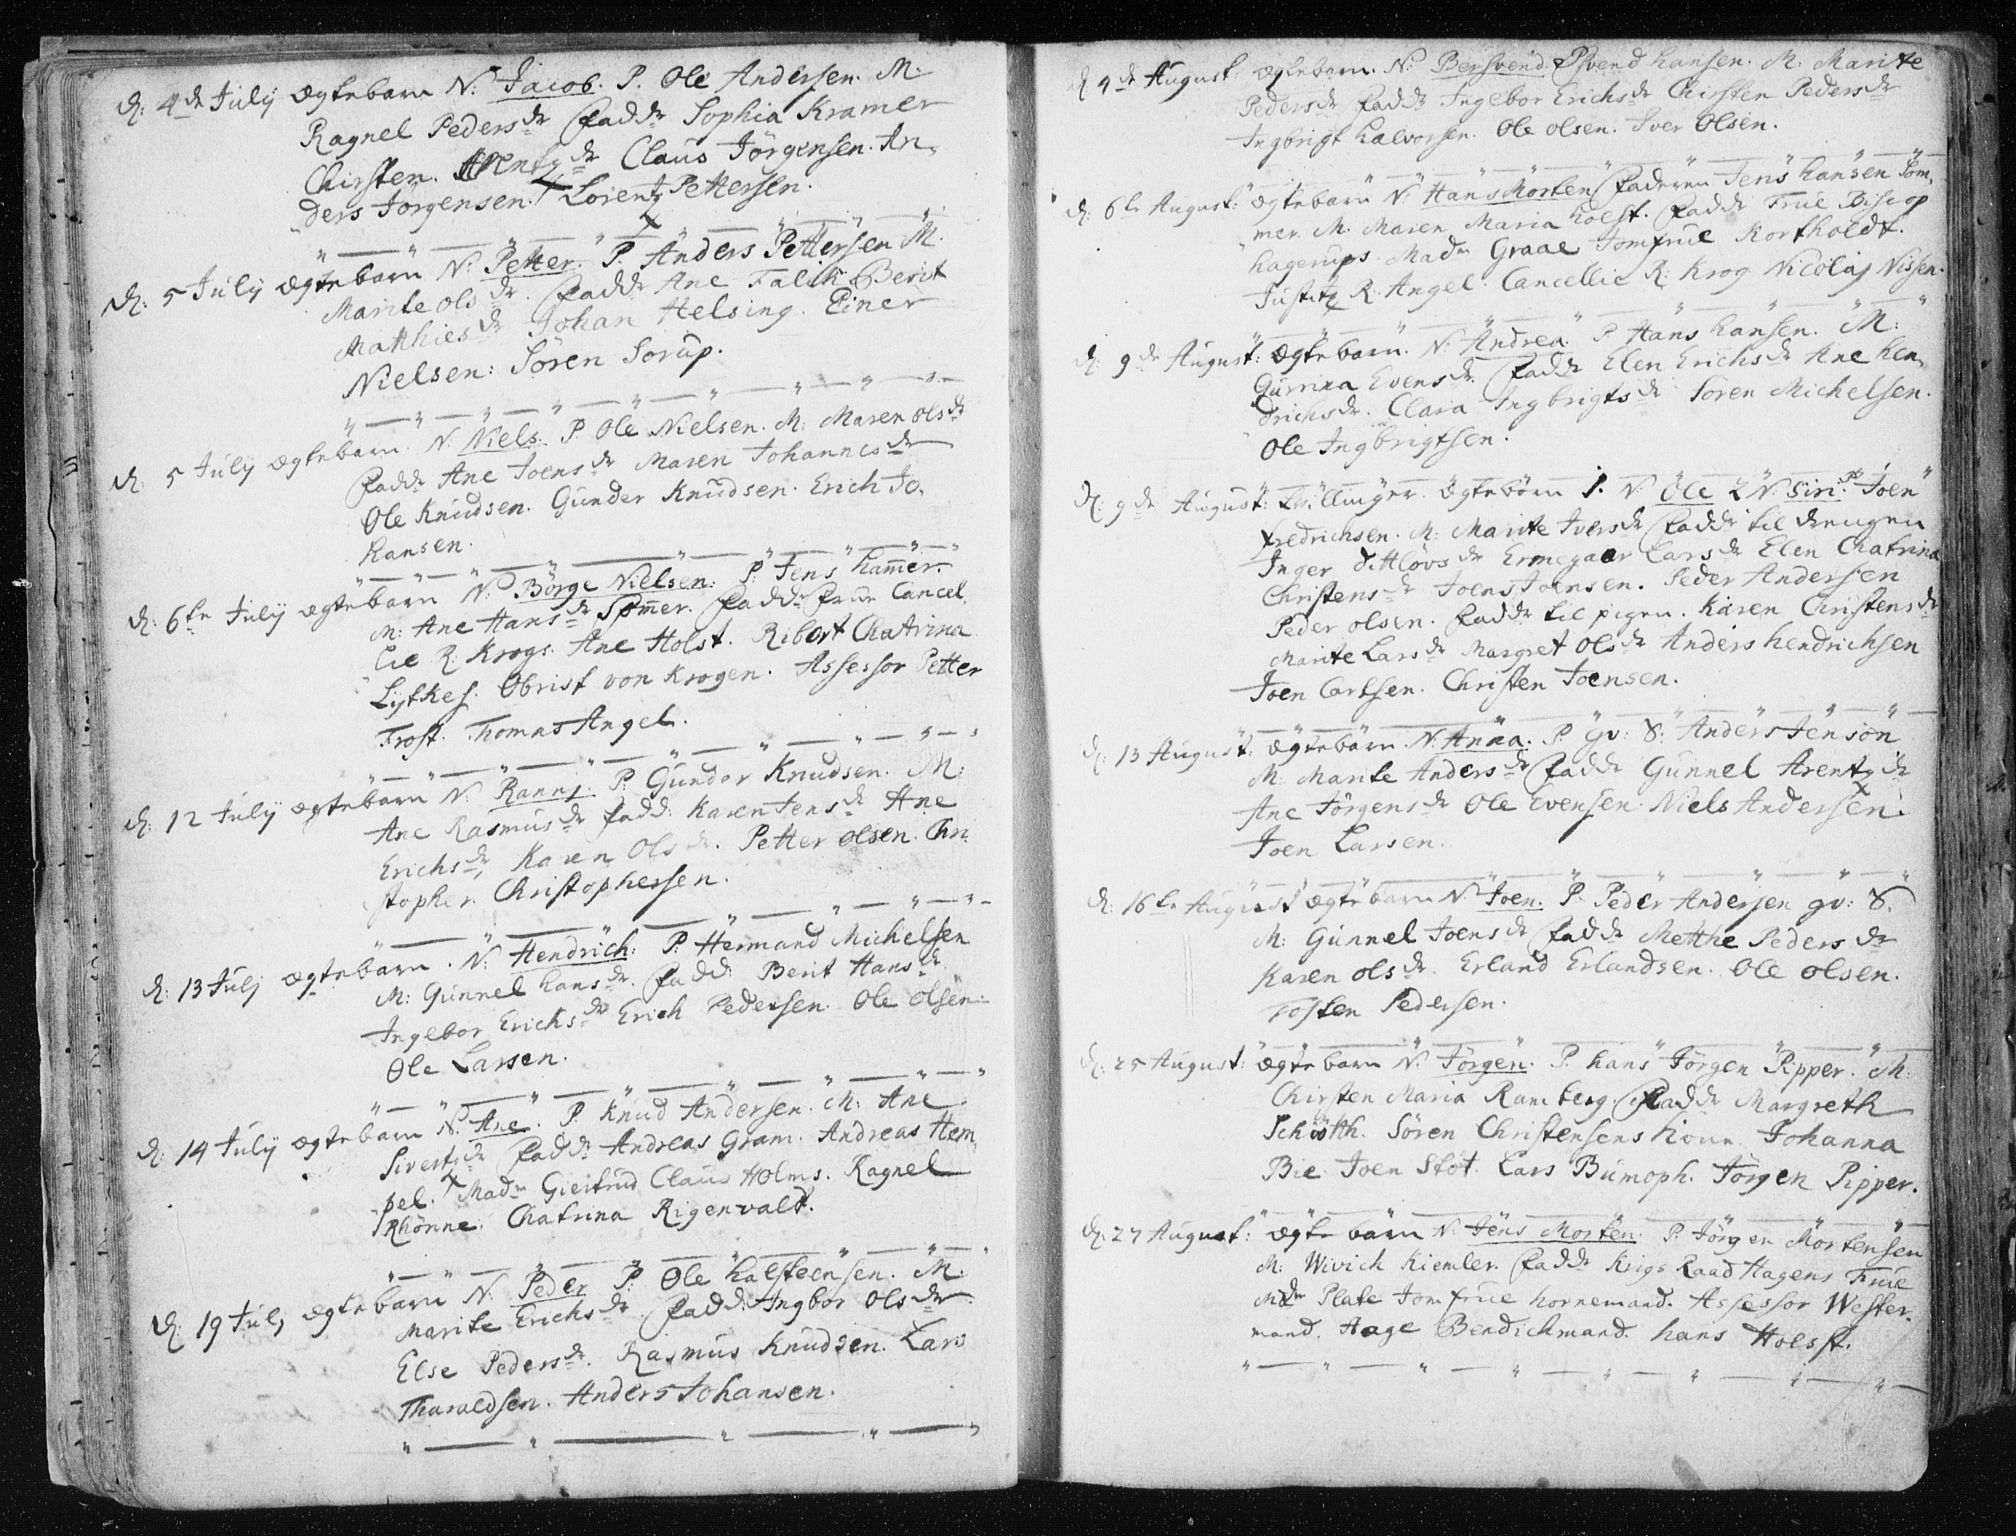 d: 4de July ægtebarn N: Jacob. P. Ole Andersen. M:
Ragnel Pedersdr Fadd: Sophia Kramer
Chirsten Arentzdr Claus Jörgensen. An-
ders Jörgensen. Lorentz Pettersen.
d: 5 July ægtebarn N: Petter. P. Anders Pettersen M:
Marite Olsdr. Fadd: Ane Falck Berit
Matthiesdr Johan Helsing. Einer
Nielsen: Sören Sorup.
d: 5 July ægtebarn N: Niels. P. Ole Nielsen. M: Maren Olsdr
Fadd: Ane Joensdr Maren Johannesdr
Ole Knudsen. Gunder Knudsen. Erich Jo-
hansen.
d: 6te July ægtebarn N: Börge Nielsen: P: Jens Hamer.
M: Ane Hansdr Sommer. Fadd: Frue Cancel-
lie R: Krogs. Ane Holst. Ribert Chatrina
Lytkes. Obrist von Krogen. Assessor Petter
Frost. Thomas Angel.
d: 12 July ægtebarn N: Ranni: P. Gunder Knudsen. M:
Ane Rasmusdr Fadd: Karen Jensdr Ane
Erichsdr, Karen Olsdr. Petter Olsen. Chri-
stopher Christophersen.
d: 13 July ægtebarn. N: Hendrich: P: Hermand Michelsen
M: Gunnel Hansdr. Fadd: Berit Hansdr
Ingebor Erichsdr Erich Pedersen. Ole Olsen.
Ole Larsen.
d: 14 July ægtebarn N: Ane. P. Knud Andersen. M: Ane
Sivertzdr Fadd: Andreas Gram. Andreas Hem-
pel. Madm Giertrud Claus Holms. Ragnel
Rhönne. Chatrina Rigenvaldt.
d: 19 July ægtebarn N: Peder P: Ole Halsteensen. M:
Marite Erichsdr. Fadd: Ingbor Olsdr
Else Pedersdr. Rasmus Knudsen. Lars
Tharaldsen. Anders Johansen.
d 4de August: ægtebarn. N: Bersvend. P Svend Hansen. M: Marite
Pedersdr Fadd: Ingebor Erichsdr Chirsten Pedersdr
Ingbrigt Halvorsen. Ole Olsen. Iver Olsen.
d: 6te August: ægtebarn N: Hans Morten Faderen Jens Hansen Som-
mer. M. Maren Maria Holst. Fadd: Frue Biscop
Hagerups Madm Graae Jomfrue Kortholdt.
Justitz R. Angel. Cancellie R: Krog Nicolaj Nissen.
d: 9de August: ægtebarn. N: Andrea. P Hans Hansen. M:
Gurrina Evensdr. Fadd: Elen Erichsdr Ane Hen-
drichsdr. Clara Ingbrigtsdr Sören Michelsen.
Ole Ingbrigtsen.
d: 9de August: Tvillinger ægtebörn 1. N: Ole 2 N: Siri. P. Joen
Fredrichsen. M: Marite Iversdr Fadd: til drengen
Inger Ditlövsdr Ermegaer Larsdr Elen Chatrina
Christensdr Joens Joensen. Peder Andersen
Peder Olsen. Fadd: til pigen. Karen Christensdr
Marite Larsdr Margret Olsdr Anders Hendrichsen
Joen Carlsen. Christen Joensen.
d: 13 August: ægtebarn N: Anna. P. gv: S: Anders Jensön
M: Marite Andersdr Fadd: Gunnel Arentzdr
Ane Jörgensdr Ole Evensen. Niels Andersen.
Joen Larsen.
d: 16te August ægtebarn N: Joen. P. Peder Andersen gv: S.
M: Gunnel Joensdr Fadd: Metthe Pedersdr
Karen Olsdr. Erland Erlandsen. Ole Olsen.
Tosten Pedersen.
d: 25 August: ægtebarn N: Jörgen. P. Hans Jörgen Pipper. M:
Chirsten Maria Ramberg. Fadd: Margreth
Schöth. Sören Christensens Kone Johanna
Bie. Joen Stöt. Lars Bumoph. Jörgen Pipper.
d: 27 August: ægtebarn N: Jens Morten: P: Jörgen Mortensen
M: Wivich Kiemler. Fadd: Krigs Raad Hagens Frue
Mdm Plate Jomfrue Hornemand. Assessor Wester-
mand. Aage Bendichmand. Hans Holst.